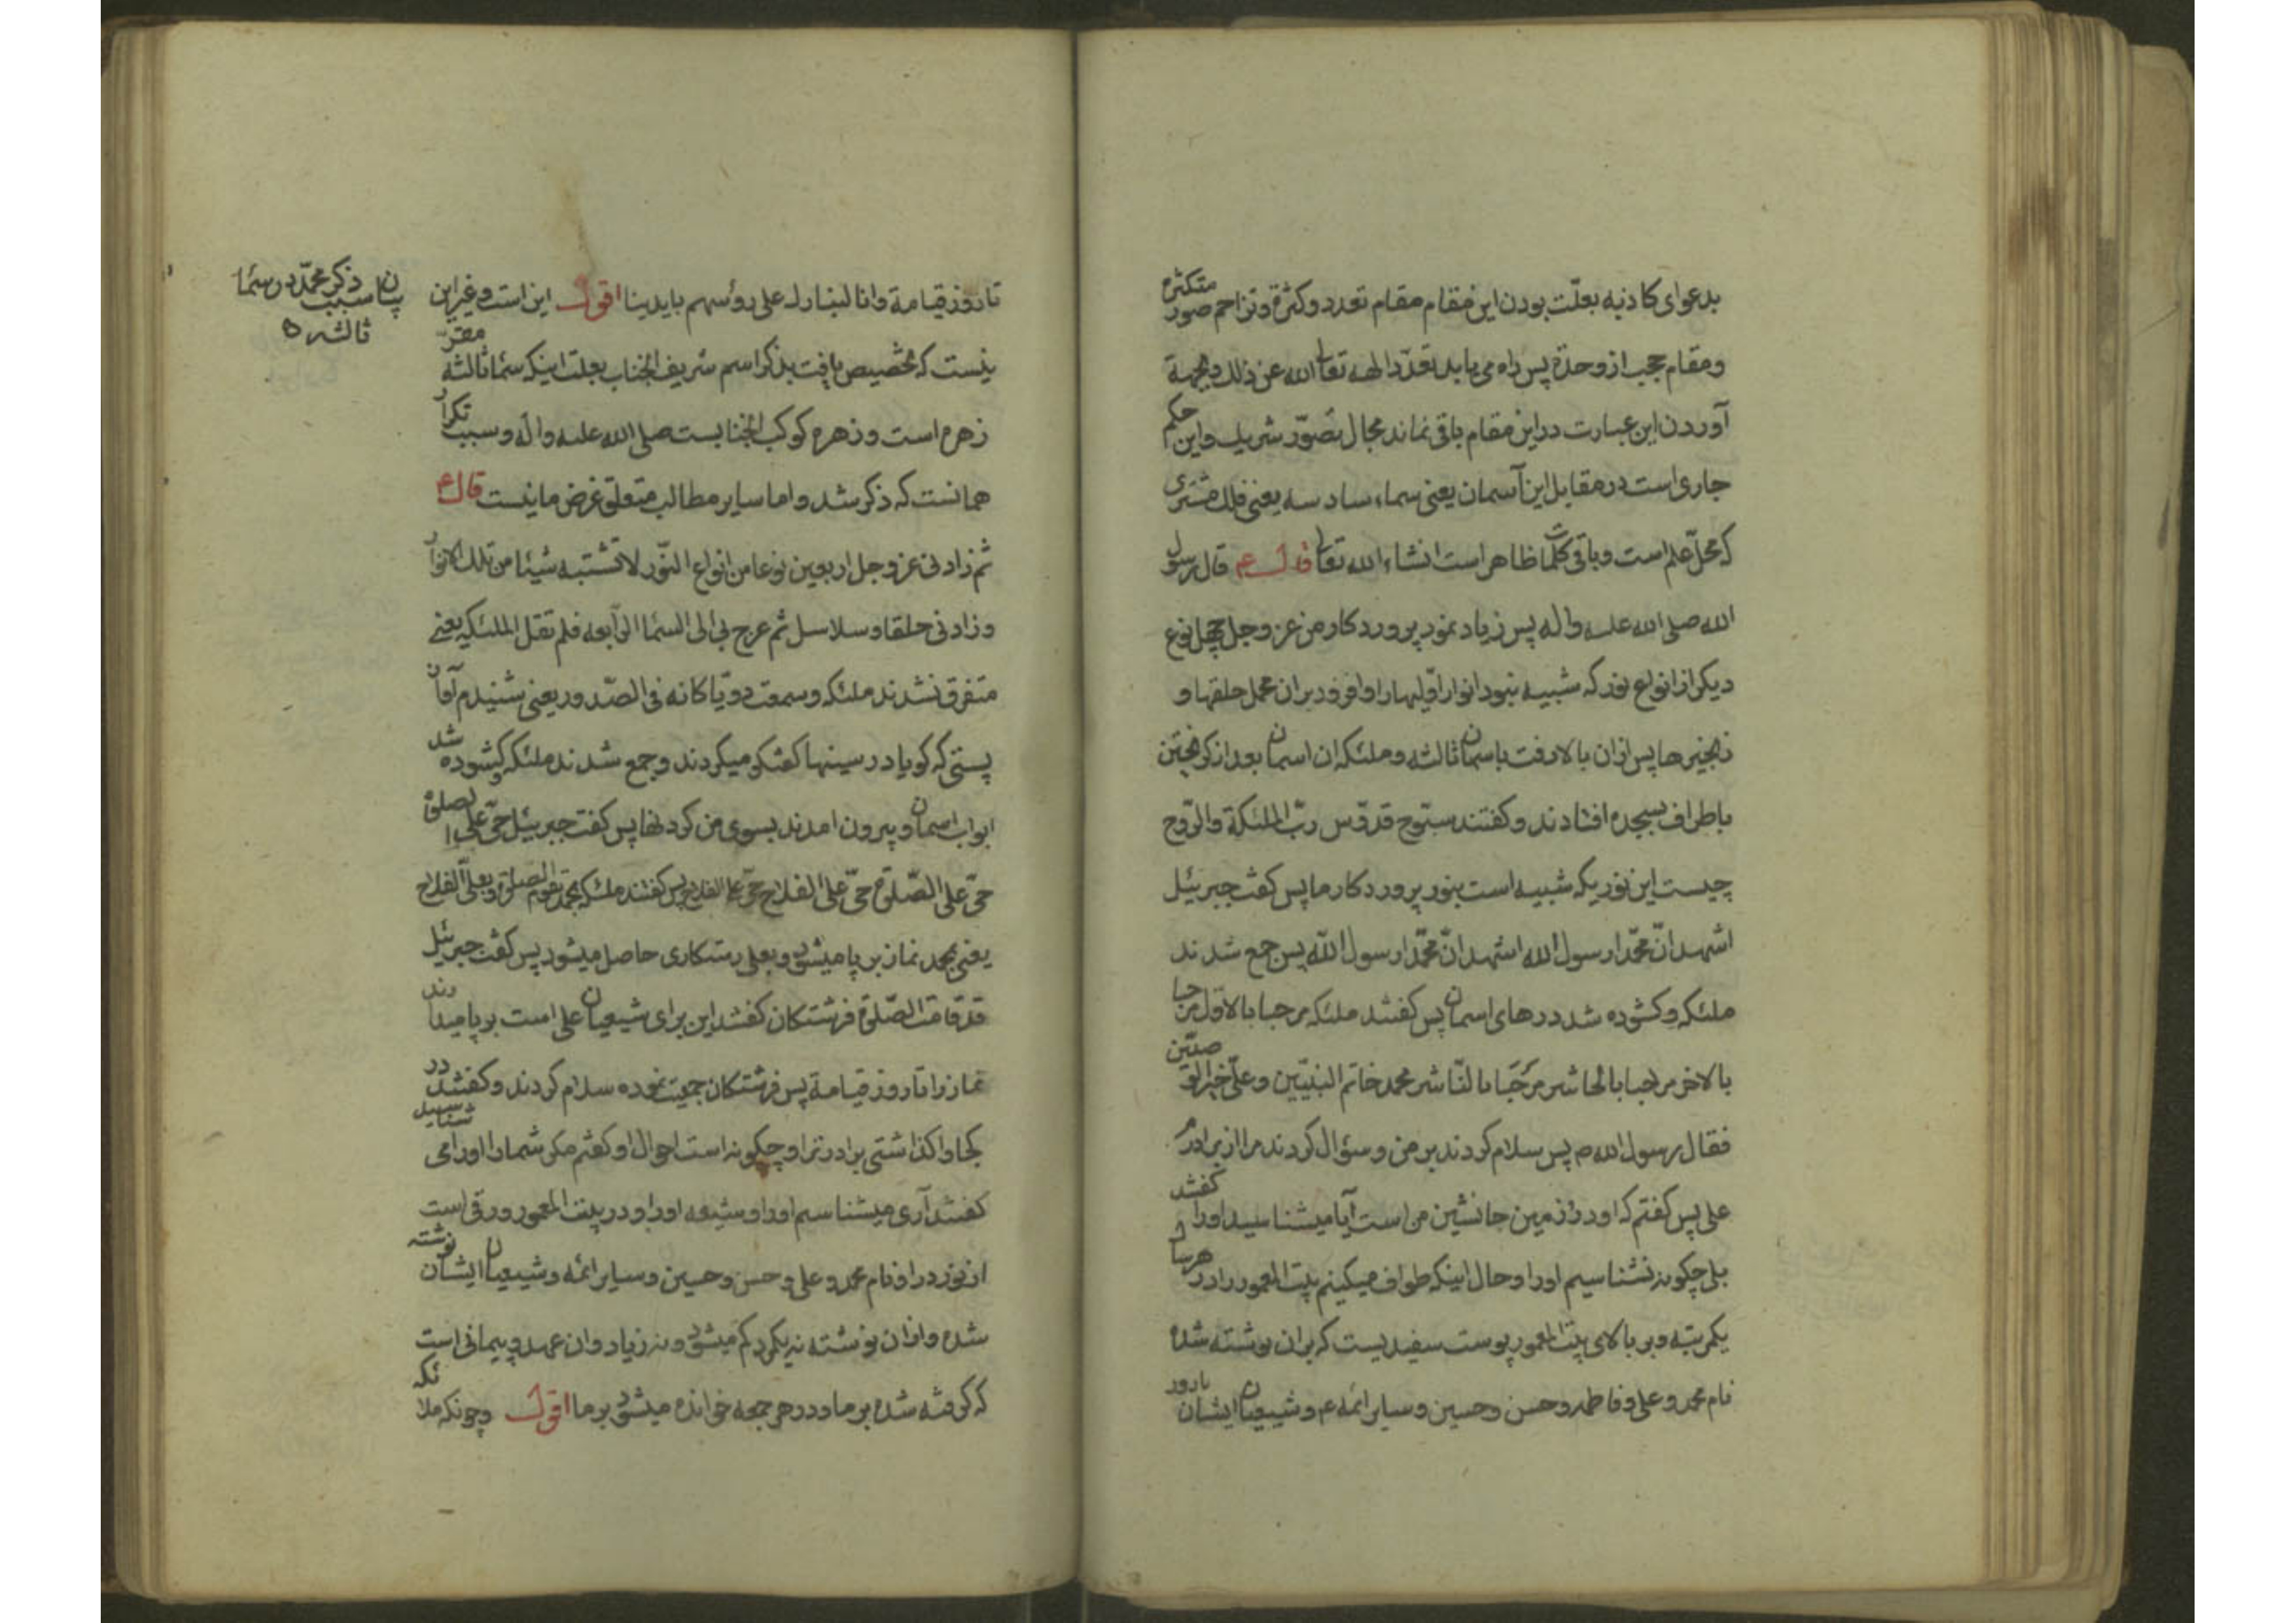 بدعوای کاذبه بعلّت بودن این مقام مقام تعدد و کثرة و تزاحم صور متکثره
و مقام حجب از وحدة پس راه می یابد تعدّد الهه تعالی الله عن ذلك و بجهة
آوردن این عبارت در این مقام باقی نماند مجال تصوّر شریك و این حکم
جاری است در مقابل این آسمان یعنی سماء سادسه یعنی فلك مشتری
که محلّ علم است و باقی کلمات ظاهر است انشاء الله تعالی قال ع قال رسول
الله صلی الله علیه واله پس زیاد نمود پروردکار من عز و جل چهل نوع
دیکر از انواع نور که شبیه نبود انوار اوّلیها را و افزود بران محمل حلقها و
زنجیرها پس ازان بالا رفت باسمان ثالثه و ملئکه ان اسمان بعد از کریختن
باطراف بسجده افتادند و کفتند سبّوح قدّوس ربّ الملئکة والرّوح
چیست این نوریکه شبیه است بنور پروردکار ما پس کفت جبرئیل
اشهد انّ محمّدا رسول الله اشهد انّ محمّدا رسول الله پس جمع شدند
ملئکه و کشوده شد درهای اسمان پس کفتند ملئکه مرحبا بالاوّل مرحبا
بالاخر مرحبا بالحاشر مرحبا بالنّاشر محمد خاتم النبیّین و علیّ خیر الوصیّین
فقال رسول الله ص پس سلام کردند بر من و سؤال کردند مرا از برادرم
علی پس کفتم که او در زمین جانشین من است آیا میشناسید او را کفتند
بلی چکونه نشناسیم او را و حال اینکه طواف میکنیم بیت المعمور را در هر سال
یکمرتبه و بر بالای بیت المعمور پوست سفیدیست که بران نوشته شده
نام محمد و علی و فاطمه و حسن و حسین و سایر ائمه ع و شیعیان ایشان
تا روز قیامة و انا لنبارك علی رؤسهم بایدینا اقول این است و غیر این
نیست که تخصیص یافت بذکر اسم شریف انجناب بعلت اینکه سماء ثالثه مقرّ
زهره است و زهره کوکب انجنابست صلی الله علیه واله و سبب تکرار
همانست که ذکر شد و اما سایر مطالب متعلق غرض ما نیست قال ع
ثم زادنی عز و جل اربعین نوعا من انواع النّور لا تشتبه شیئا من تلك الانوار
و زادنی حلقا و سلاسل ثم عرج بی الی السماء الرابعه فلم تقل الملئکه یعنی
متفرق نشدند ملئکه و سمعت دویّا کانه فی الصّدور یعنی شنیدم آوان
پستی که کویا در سینها کفتکو میکردند و جمع شدند ملئکه و کشوده شد
ابواب اسمان و بیرون امدند بسوی من کردنها پس کفت جبرئیل حیّ علی الصلوة
حیّ علی الصّلوة حیّ علی الفلاح حیّ علی الفلاح پس کفتند ملئکه بمحمد تقوم الصلوة و بعلیّ الفلاح
یعنی بمحمد نماز بر پا میشود و بعلی رستکاری حاصل میشود پس کفت جبرئیل
قد قامت الصّلوة فرشتکان کفتند این برای شیعیان علی است بر پا میدارند
نماز را تا روز قیامة پس فرشتکان جمعیت نموده سلام کردند و کفتند در
کجا واکذاشتی برادرترا و چکونه است احوال او کفتم مکر شماها او را می شناسید
کفتند آری میشناسیم او را و شیعه او را و در بیت المعمور ورقی است
از نور در او نام محمد و علی و حسن و حسین و سایر ائمه و شیعیان ایشان نوشته
شده و ازان نوشته نه یکمرد کم میشود و نه زیاد و ان عهد و پیمانی است
که کرفته شده بر ما و در هر جمعه خوانده میشود بر ما اقول و چونکه ملائکه
بیان سبب ذکر محمّد در سماء
ثالثه ه